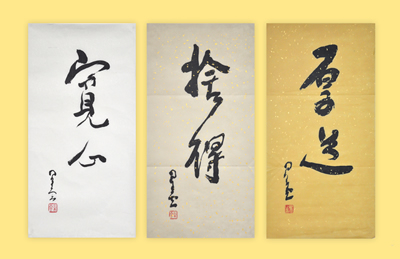 寬心
捨得
厚道